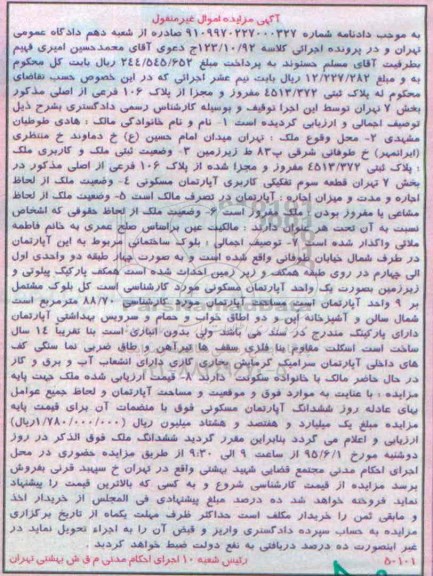 آگهی مزایده اموال غیرمنقول
به موجب دادنامه شماره ۹۱۰۹۹۷۰۲۲۷۰۰۰۳۲۷ صادره از شعبه دهم دادگاه عمومی
تهران و در پرونده اجرائی کلاسه ۱۲۳/۱۰/۹۲ج دعوی آقای محمدحسین امیری فهیم
بطرفیت آقای مسلم حسنوند به پرداخت مبلغ ۲۴۴/۵۴۵/۶۵۲ ریال بابت کل محکوم
به و مبلغ ۱۲/۲۲۷/۲۸۲ ریال بابت نیم عشر اجرائی که در این خصوص حسب تقاضای
محکوم له پلاک ثبتی ۴۵۱۳/۳۷۲ مفروز و مجزا از پلاک ۱۰۶ فرعی از اصلی مذکور
بخش ۷ تهران توسط این اجرا توقیف و بوسیله کارشناس رسمی دادگستری بشرح ذیل
توصیف اجمالی و ارزیابی گردیده است ۱- نام و نام خانوادگی مالک : هادی طوطیان
مشهدی ۲- محل وقوع ملک : تهران میدان امام حسین (ع) خ دماوند خ منتظری
(ایرانمهر) خ طوفانی شرقی پ۸۳ ط زیرزمین ۳- وضعیت ثبتی ملک و کاربری ملک
: پلاک ثبتی ۴۵۱۳/۳۷۲ مفروز و مجزا شده از پلاک ۱۰۶ فرعی از اصلی مذکور در
بخش ۷ تهران قطعه سوم تفکیکی کاربری آپارتمان مسکونی ۴- وضعیت ملک از لحاظ
اجاره و مدت و میزان اجاره : آپارتمان در تصرف مالک است ۵- وضعیت ملک از لحاظ
مشاعی یا مفروز بودن : ملک مفروز است ۶- وضعیت ملک از لحاظ حقوقی که اشخاص
نسبت به آن تحت هر عنوان دارند : مالکیت عین براساس صلح عمری به خانم فاطمه
ملائی واگذار شده است ۷- توصیف اجمالی : بلوک ساختمانی مربوط به این آپارتمان
در طرف شمال خیابان طوفانی واقع شده است و به صورت چهار طبقه دو واحدی اول
الی چهارم در روی طبقه همکف و زیر زمین احداث شده است همکف پارکینگ پیلوتی و
زیرزمین بصورت یک واحد آپارتمان مسکونی مورد کارشناسی است کل بلوک مشتمل
بر ۹ واحد آپارتمان است مساحت آپارتمان مورد کارشناسی ۸۸/۷۰ مترمربع است
شمال سالن و آشپزخانه اپن و دو اطاق خواب و حمام و سرویس بهداشتی آپارتمان
دارای پارکینگ مندرج در سند می باشد ولی بدون انباری است بنا تقریباً ۱۴ سال
ساخت است اسکلت مقاوم بنا فلزی سقف ها تیرآهن و طاق ضربی نما سنگی کف
های داخلی آپارتمان سرامیک گرمایش بخاری گازی دارای انشعاب آب و برق و گاز
در حال حاضر مالک با خانواده سکونت دارند ۸- قیمت ارزیابی شده ملک جهت پایه
مزایده : با عنایت به موارد فوق و موقعیت و مساحت آپارتمان و لحاظ جمیع عوامل
بهای عادله روز ششدانگ آپارتمان مسکونی فوق با منضمات آن برای قیمت پایه
مزایده مبلغ یک میلیارد و هفتصد و هشتاد میلیون ریال (۱/۷۸۰/۰۰۰/۰۰۰ریال)
ارزیابی و اعلام می گردد بنابراین مقرر گردید ششدانگ ملک فوق الذکر در روز
دوشنبه مورخ ۹۵/۶/۱ از ساعت ۹ الی ۹:۳۰ از طریق مزایده حضوری در محل
اجرای احکام مدنی مجتمع قضایی شهید بهشتی واقع در تهران خ سپهبد قرنی بفروش
برسد مزایده از قیمت کارشناسی شروع و به کسی که بالاترین قیمت را پیشنهاد
نماید فروخته خواهد شد ده درصد مبلغ پیشنهادی فی المجلس از خریدار اخذ
و مابقی ثمن را خریدار مکلف است حداکثر ظرف مهلت یکماه از تاریخ برگزاری
مزایده به حساب سپرده دادگستری واریز و قبض آن را به اجراء تحویل نماید در
غیر اینصورت ده درصد دریافتی به نفع دولت ضبط خواهد گردید.
۵۰۱۰۱ رئیس شعبه ۱۰ اجرای احکام مدنی م ق ش بهشتی تهران